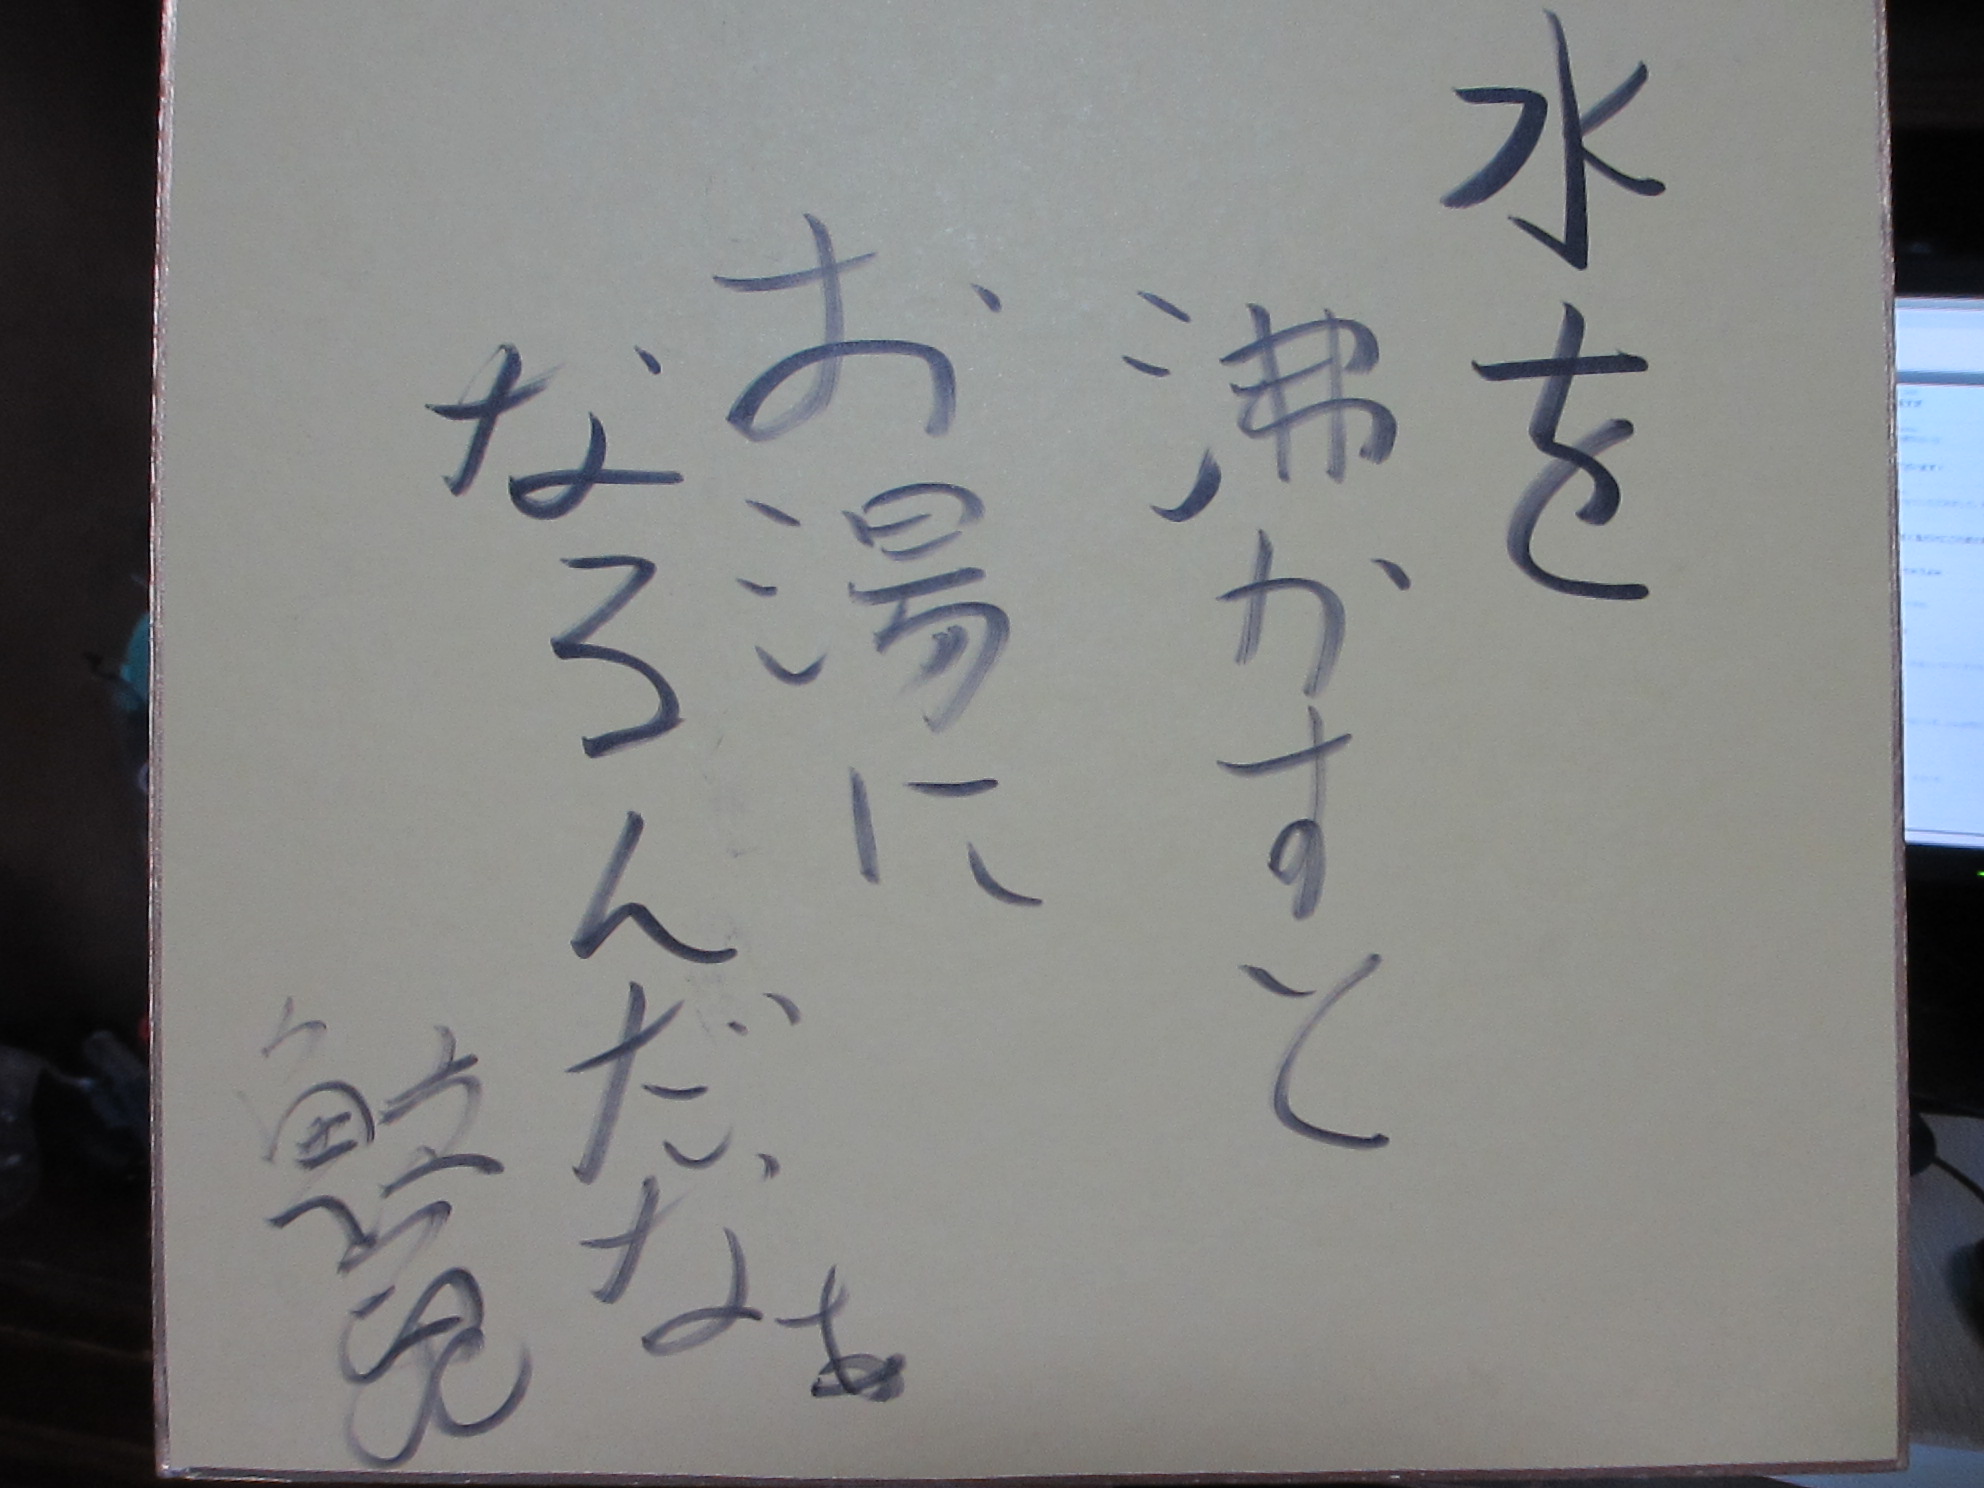 水を
沸かすと
お湯に
なろんだなぁ